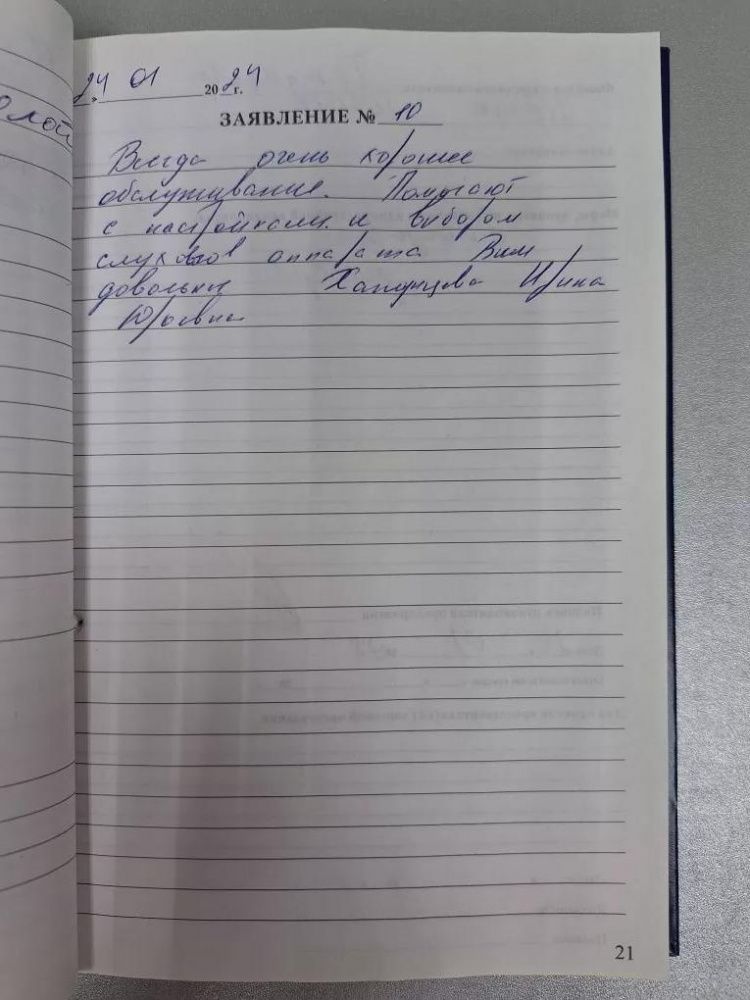 олой
24 01 2024 г.
ЗАЯВЛЕНИЕ № 10
Всегда очень хорошее
обслуживание. Помогают
с настройками и выбором
слухового аппарата Вим
довольны Ирина
Юрьевна
21